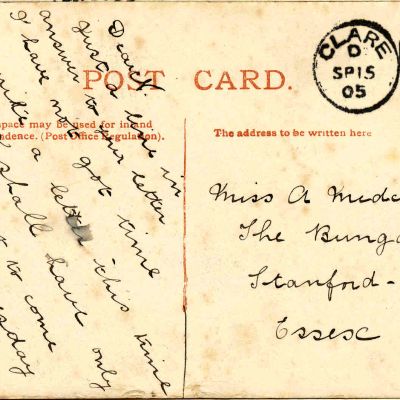 POST CARD.
space may be used for inland
ndence. (Post Office Regulation).
The address to be written here
CLARE
D
SP 15
05
Dear
Just a line in
answer to your letter
I have not got time
a letter this time
shall have only
to come
Miss A Meda
The Bunga
Stanford-
Essex